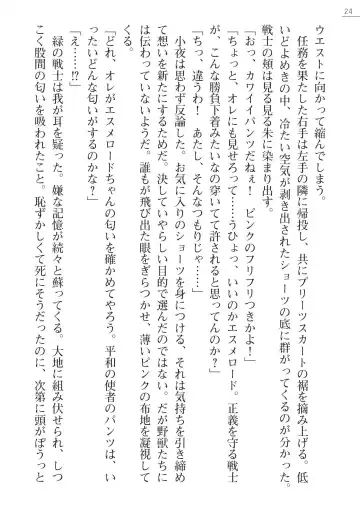 24
ウエストに向かって縮んでしまう。
　任務を果たした右手は左手の隣に帰投し、共にプリーツスカートの裾を摘み上げる。低
いどよめきの中、冷たい空気が剥き出されたショーツの底に群がってくるのが分かった。
戦士の頬は見る見る朱に染まり出す。
「おほっ、カワイイパンツだねぇ！　ピンクのフリフリつきかよ！」
「ちょっと、オレにも見せろって……うひょっ、いいのかエスメロード。正義を守る戦士
が、こんな勝負下着みたいなの穿いてて許されると思ってんのか？」
「ちっ、違うわ！　あたし、そんなつもりじゃ……」
　小夜は思わず反論する。お気に入りのショーツを身につける、それは気持ちを引き締め
て想いを新たにするためだ。決していやらしい目的で選んだのではない。だが野獣たちに
は伝わっていないようだ。誰もが飛び出た眼をぎらつかせ、薄いピンクの布地を凝視して
くる。
「どれ、オレがエスメロードちゃんの匂いを確かめてやろう。平和の使者のパンツは、い
ったいどんな匂いがするのかな？」
　緑の戦士は我が耳を疑った。嫌な記憶が続々と蘇ってくる。大地に組み伏せられ、しつ
こく股間の匂いを吸われたこと。恥ずかしくて死にそうだったのに、次第に頭がぼうっと